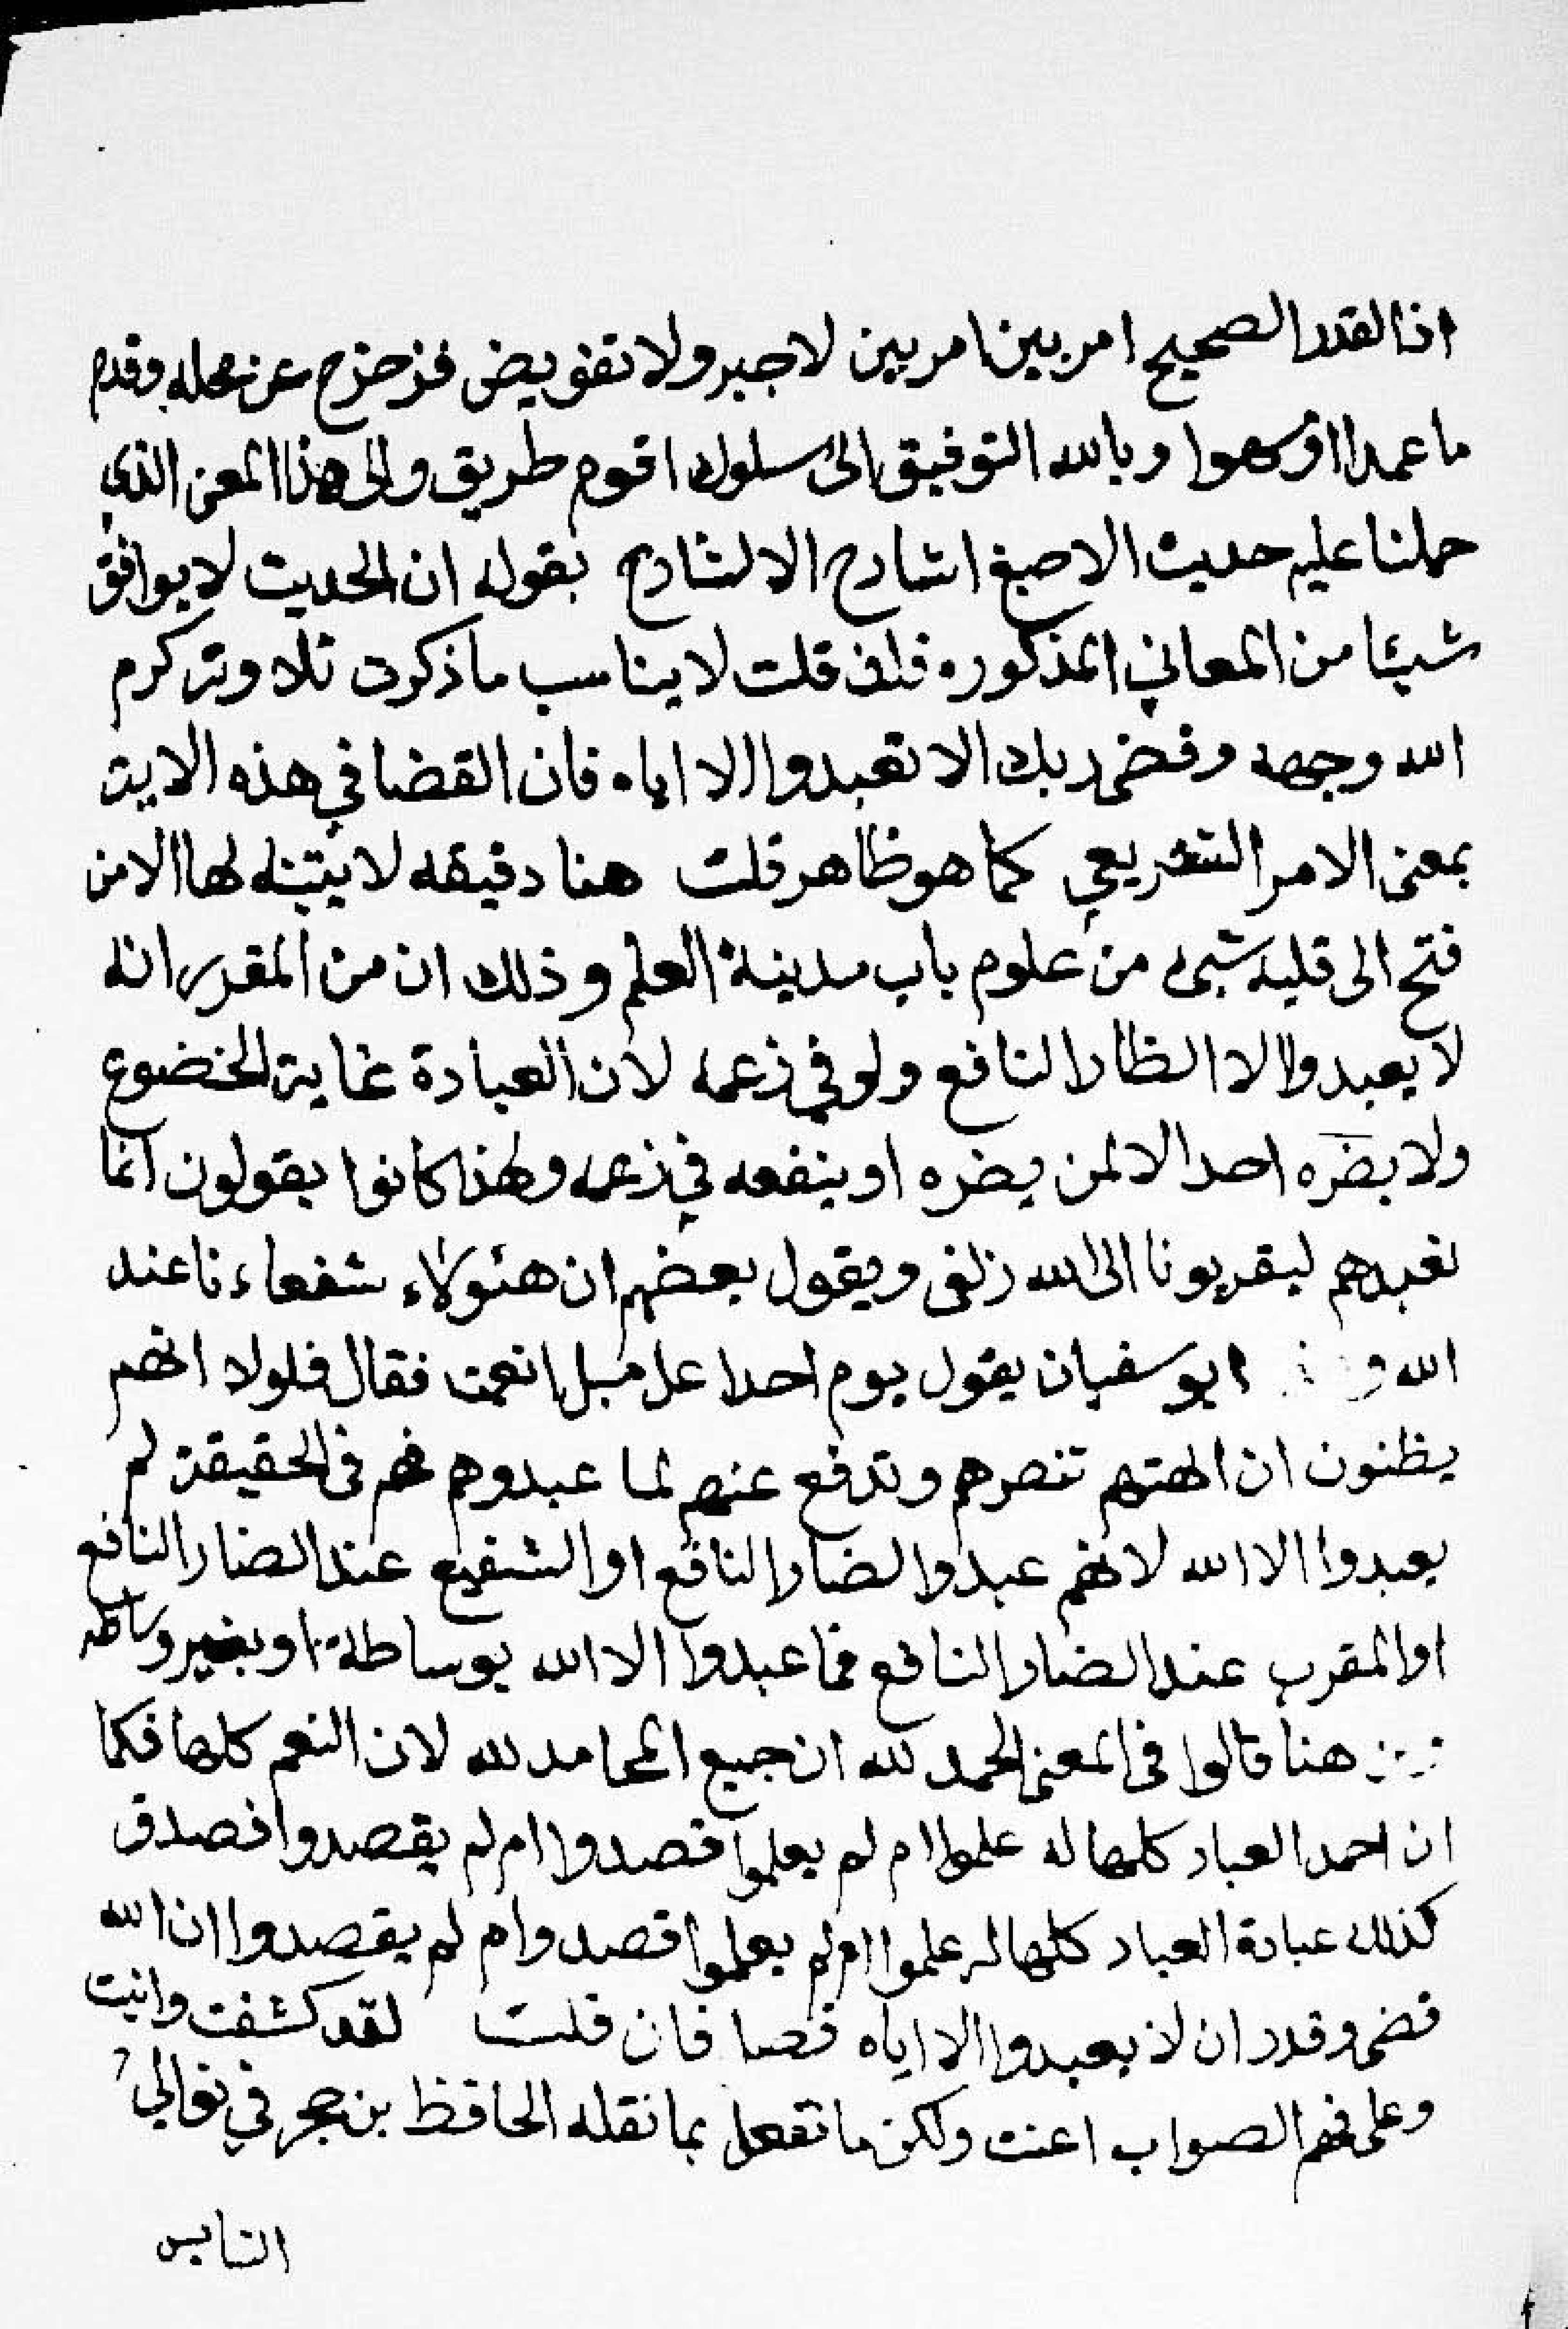 اذا القدر الصحيح امر بين امر بين لا جبر ولا تفويض فزحزح عن محله وقدم
ما عمدا او سهوا وبالله التوفيق الى سلوك اقوم طريق والى هذا المعنى الذي
حملنا عليه حديث الاصبغ اشار الشارح بقوله ان الحديث لا يوافق
شيئا من المعاني المذكوره فان قلت لا يناسب ما ذكرت تلاوته كرم
الله وجهه وقضى ربك الا تعبدوا الا اياه فان القضا في هذه الاية
بمعنى الامر التشريعي كما هو ظاهر قلت هنا دقيقه لا يتبنه لها الا من
فتح الى قلبه شيء من علوم باب مدينة العلم وذلك ان من المقرر انه
لا يعبدوا الا الظار النافع ولو في زعمه لان العبادة غاية الخضوع
ولا يضره احد الا لمن يضره او ينفعه في زعمه ولهذا كانوا يقولون انما
نعبدهم ليقربونا الى الله زلفى ويقول بعضهم ان هئولاء شفعاءنا عند
الله و ابو سفيان يقول يوم احد اعل هبل انعمت فقال فلولا انهم
يظنون ان الهتهم تنصرهم وتدفع عنهم لما عبدوهم فهم في الحقيقة لم
يعبدوا الا الله لانهم عبدوا الضار النافع او الشفيع عند الضار النافع
او المقرب عند الضار النافع فما عبدوا الا الله بوساطة او بغير وساطه
هنا قالوا في المعنى الحمد لله ان جميع المحامد لله لان النعم كلها فكما
ان احمد العباد كلها له علموا ام لم يعلموا قصدوا ام لم يقصدوا فصدق
كذلك عبادة العباد كلها له علموا ام لم يعلموا قصدوام لم يقصدوا ان الله
قضى وقدر ان لا يعبدوا الا اياه فان قلت لقد كشفت وانيت
وعلى فهم الصواب اعنت ولكن ما تفعل بما نقله الحافظ بن حجر في توالي
التاسيس